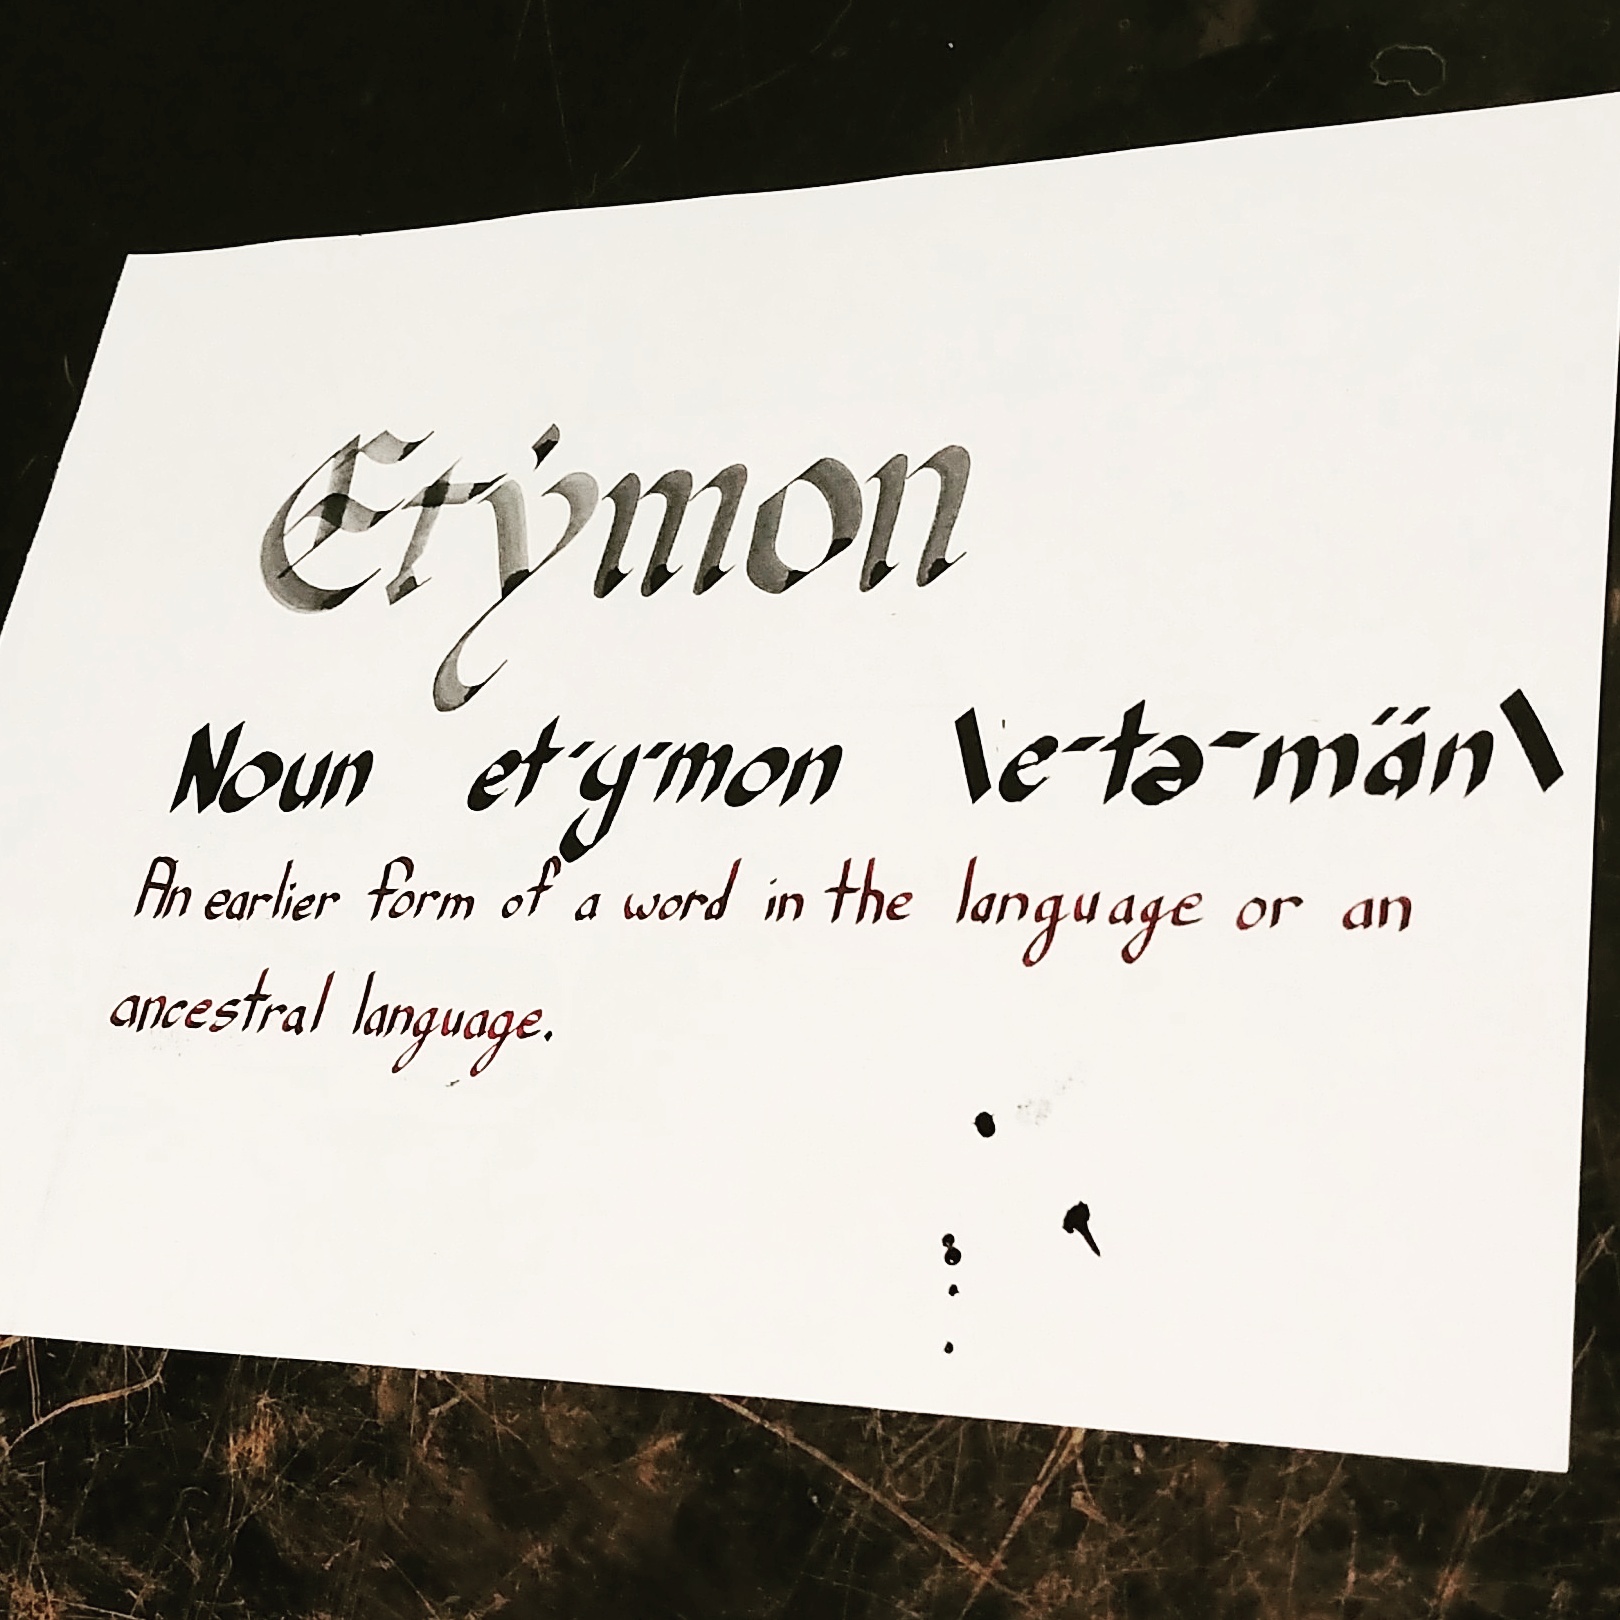 Etymon
Noun et·y·mon \e-tə-män\
An earlier form of a word in the language or an
ancestral language.